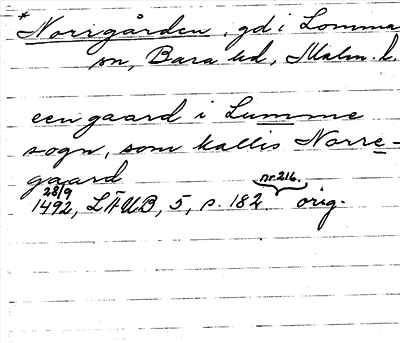 * Norrgården, gd i Lomma
sn, Bara hd, Malm. l.
een gaard i Lumme
sogn, som kallis Norre-
gaard
28/9 1492, LÄUB, 5, s. 182 nr. 216. orig.